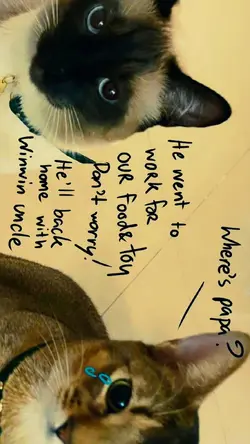 Where's papa?
He went to
work for
our food & toy
Don't worry!
He'll back
home with
Winwin uncle